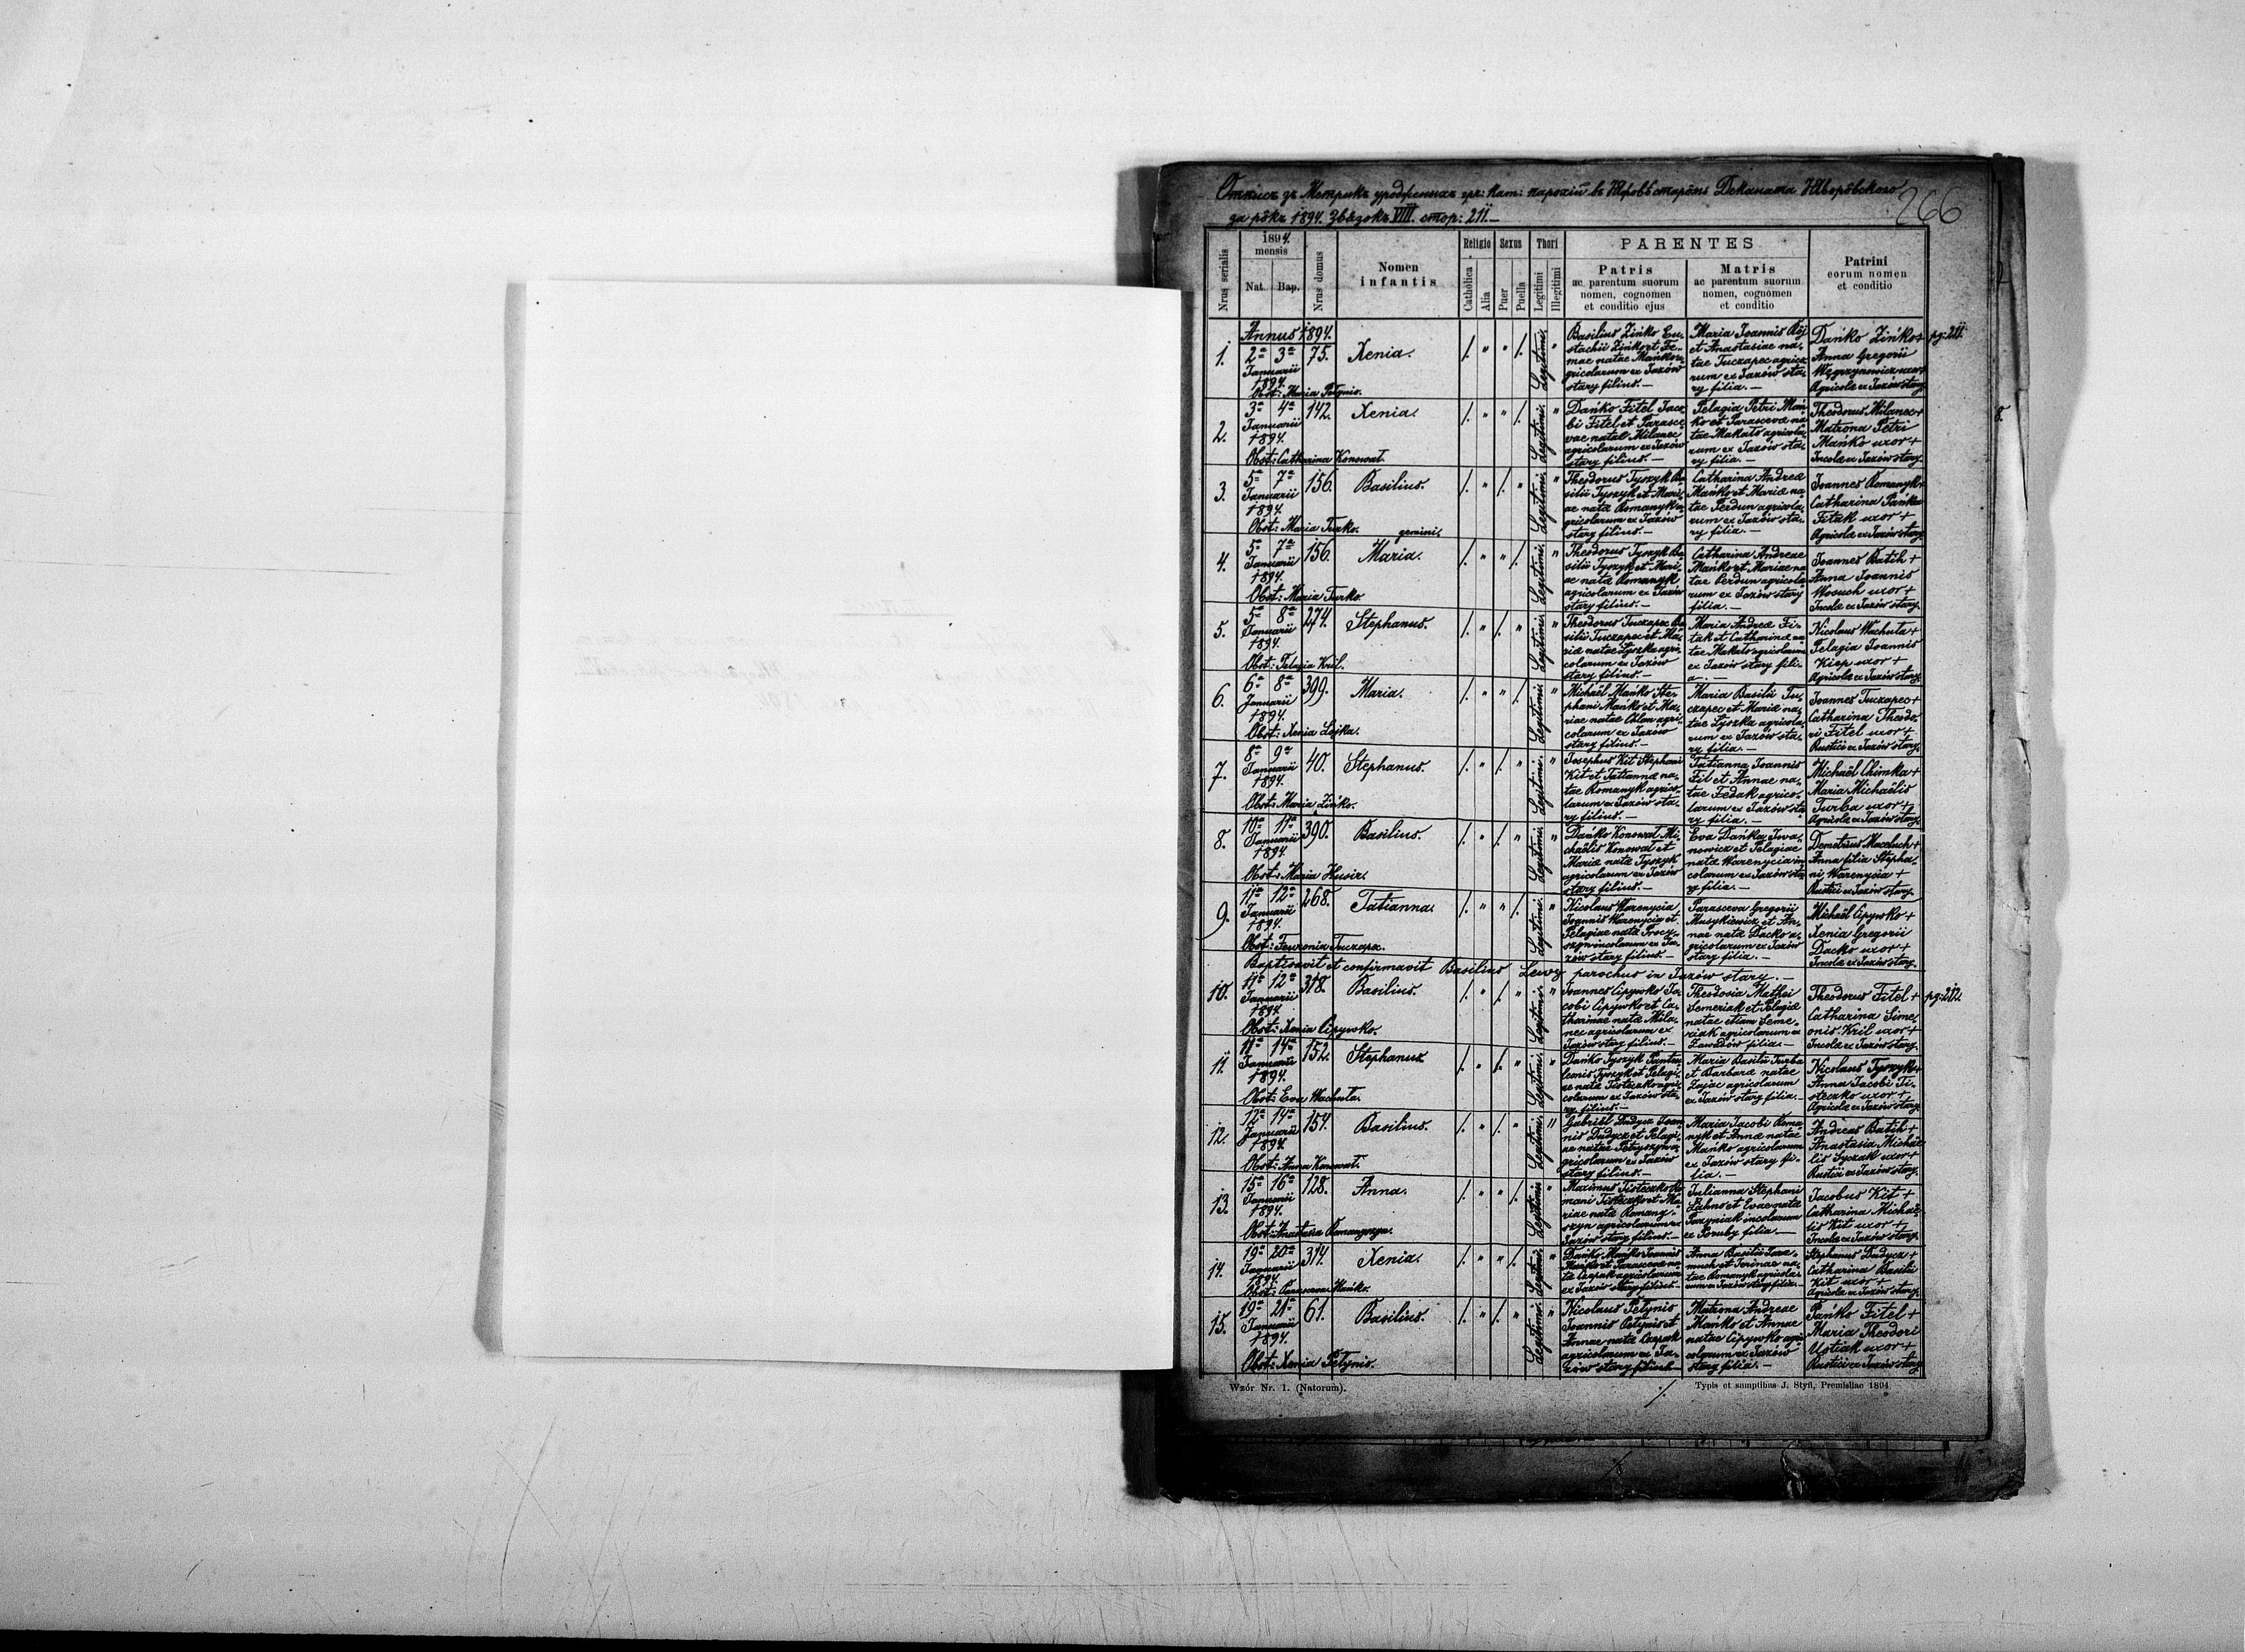 Отпись зъ Метрикъ уродженыхъ гр: кат: парохіи въ Яровѣ старôмъ Деканата Яворôвского
за рôкъ 1894. Звязокъ VIII. стор: 211.—
266
Nrus serialis
1894.
mensis
Nat.
Bap.
Nrus domus
Nomen
infantis
Religio
Catholica
Alia
Sexus
Puer
Puella
Thori
Legitimi
Illegitimi
PARENTES
Patris
ac parentum suorum
nomen, cognomen
et conditio ejus
Matris
ac parentum suorum
nomen, cognomen
et conditio
Patrini
eorum nomen
et conditio
Annus 1894.
1.
2a 3a
Januarii
1894.
75.
Xenia.
Legitimi.
Basilius Zińko Eu-
stachii Zińko et Fe-
mae natae Mańko a-
gricolarum ex Jazów
stary filius.—
Maria Joannis Kój
et Anastasiae na-
tae Tuczapec agrico-
rum ex Jazów sta-
ry filia.—
Dańko Zińko +
Anna Gregorii
Węgrzynowicz uxor +
Agricolæ ex Jazów stary
pg: 211.
Obst: Maria Petynio.
2.
3a 4a
Januarii
1894.
142.
Xenia.
Legitimi.
Dańko Fitel Jaco-
bi Fitel et Parasce-
vae natae Milanec
agricolarum ex Jazów
stary filius.—
Pelagia Petri Mań-
ko et Parascevæ na-
tae Makats agricola-
rum ex Jazów sta-
ry filia.—
Theodorus Milanec +
Matrona Petri
Mańko uxor +
Incolæ ex Jazów stary.
Obst: Catharina Konowat.
3.
5a 7a
Januarii
1894.
156.
Basilius.
Legitimi.
Theodorus Tyszyk Ba-
silii Tyszyk et Mari-
ae natæ Romanyk a-
gricolarum ex Jazów
stary filius.—
Catharina Andreæ
Mańko et Mariæ na-
tae Perdun agricola-
rum ex Jazów sta-
ry filia.—
Joannes Romanyk +
Catharina Pańka
Fitak uxor +
Agricolæ ex Jazów stary.
Obst: Maria Turko.
gemini.
4.
5a 7a
Januarii
1894.
156.
Maria.
Legitimi.
Theodorus Tyszyk Ba-
silii Tyszyk et Mari-
ae natæ Romanyk
agricolarum ex Jazów
stary filius.—
Catharina Andreae
Mańko et Mariae na-
tae Perdun agricola-
rum ex Jazów stary
filia.—
Joannes Batih +
Anna Joannis
Wosuch uxor +
Incolæ ex Jazów stary.
Obst: Maria Turko.
5.
5a 8a
Januarii
1894.
274.
Stephanus.
Legitimi.
Theodorus Tuczapec Ba-
silii Tuczapec et Ma-
riæ natae Łyszka agri-
colarum ex Jazów
stary filius.—
Maria Andreæ Fi-
tak et Catharinæ na-
tae Makats agricolarum
ex Jazów stary fili-
a.—
Nicolaus Wachuta +
Pelagia Joannis
Kiep uxor +
Agricolæ ex Jazów stary.
Obst: Pelagia Kril.
6.
6a 8a
Januarii
1894.
399.
Maria.
Legitimi.
Michaël Mańko Ste-
phani Mańko et Ma-
riae natae Człan agri-
colarum ex Jazów
stary filius.—
Maria Basilii Tu-
czapec et Mariæ na-
tae Łyszka agricola-
rum ex Jazów sta-
ry filia.—
Joannes Tuczapec +
Catharina Theodo-
ri Fitel uxor +
Rustici ex Jazów stary.
Obst: Xenia Łojka.
7.
8a 9a
Januarii
1894.
40.
Stephanus.
Legitimi.
Josephus Kit Stephani
Kit et Tatiannæ na-
tae Romanyk agrico-
larum ex Jazów sta-
ry filius.—
Tatianna Joannis
Fil et Annae na-
tae Fedak agrico-
larum ex Jazów sta-
ry filia.—
Michaël Chimka +
Maria Michaëlis
Turba uxor +
Agricolæ ex Jazów stary.
Obst: Maria Zińko.
8.
10a 11a
Januarii
1894.
390.
Basilius.
Legitimi.
Dańko Konowat Mi-
chaëlis Konowat et
Mariæ natæ Tyszyk
agricolarum ex Jazów
stary filius.—
Eva Dańka Iwa-
nowicz et Pelagiae
natæ Warenycia in-
colarum ex Jazów sta-
ry filia.—
Demetrius Maceluch +
Anna filia Stepha-
ni Warenycia +
Rustici ex Jazów stary.
Obst: Maria Husiz.
9.
11a 12a
Januarii
1894.
268.
Tatianna.
Legitimi.
Nicolaus Warenycia
Joannis Warenycia et
Pelagiae natæ Procy-
szyn incolarum ex Ja-
zów stary filius.—
Parasceva Gregorii
Musykiewicz et An-
nae natæ Dacko a-
gricolarum ex Jazów
stary filia.—
Michaël Cipywko +
Xenia Gregorii
Dacko uxor +
Incolæ ex Jazów stary.
Obst: Fevronia Tuczapec.
Baptisavit et confirmavit Basilius Lewy parochus in Jazów stary.—
10.
11a 12a
Januarii
1894.
318.
Basilius.
Legitimi.
Joannes Cipywko Ja-
cobi Cipywko et Ca-
tharinae natæ Mila-
nec agricolarum ex
Jazów stary filius.—
Theodosia Mathei
Semeriak et Pelagiæ
natae etiam Seme-
riak agricolarum ex
Zawadów filia.—
Theodorus Fitel +
Catharina Sime-
onis Kril uxor +
Incolæ ex Jazów stary.
pg: 212.
Obst: Xenia Cipywko.
11.
11a 14a
Januarii
1894.
152.
Stephanus
Legitimi.
Dańko Tyszyk Panta-
leonis Tyszyk et Pelagi-
ae natæ Tisteczko agri-
colarum ex Jazów sta-
ry filius.—
Maria Basilii Turba
et Barbaræ natae
Zajac agricolarum
ex Jazów stary filia.—
Nicolaus Tyszyk +
Anna Jacobi Ti-
steczko uxor +
Agricolæ ex Jazów stary.
Obst: Eva Wachuta.
12.
12a 14a
Januarii
1894.
154.
Basilius.
Legitimi.
Gabriël Dudycz Joan-
nis Dudycz et Pelagi-
ae natae Petryszyn a-
gricolarum ex Jazów
stary filius.—
Maria Jacobi Roma-
nyk et Annæ natae
Mańko agricolarum
ex Jazów stary fi-
lia.—
Andreas Batih +
Anastasia Michaë-
lis Syczak uxor +
Rustici ex Jazów stary.
Obst: Anna Konowat.
13.
15a 16a
Januarii
1894.
128.
Anna.
Legitimi.
Maximus Tisteczko Ro-
mani Tisteczko et Ma-
riae natæ Romany-
szyn agricolarum ex
Jazów stary filius.—
Julianna Stephani
Łahno et Evae natæ
Pazyniak incolarum
ex Poruby filia.—
Jacobus Kit +
Catharina Michaë-
lis Kit uxor +
Incolæ ex Jazów stary.
Obst: Anastasia Romanyszyn.
14.
19a 20a
Januarii
1894.
314.
Xenia.
Legitimi.
Dańko Mańko Joannis
Mańko et Parascevæ na-
tæ Czepak agricolarum
ex Jazów stary filius.—
Anna Basilii Jare-
much et Irinae na-
tae Romanyk agricola-
rum ex Jazów stary filia.—
Stephanus Dudycz +
Catharina Basilii
Kit uxor +
Agricolæ ex Jazów stary.
Obst: Parasceva Mańko.
15.
19a 21a
Januarii
1894.
61.
Basilius.
Legitimi.
Nicolaus Petynio
Joannis Petynio et
Annae natæ Czepak
agricolarum ex Ja-
zów stary filius.—
Matrona Andreae
Mańko et Annae
natae Cipywko agri-
colarum ex Jazów
stary filia.—
Pańko Fitel +
Maria Theodori
Ustiak uxor +
Rustici ex Jazów stary.
Obst: Xenia Petynio.
Wzór Nr. 1. (Natorum).
Typis et sumptibus J. Styfi, Premisliae 1894.